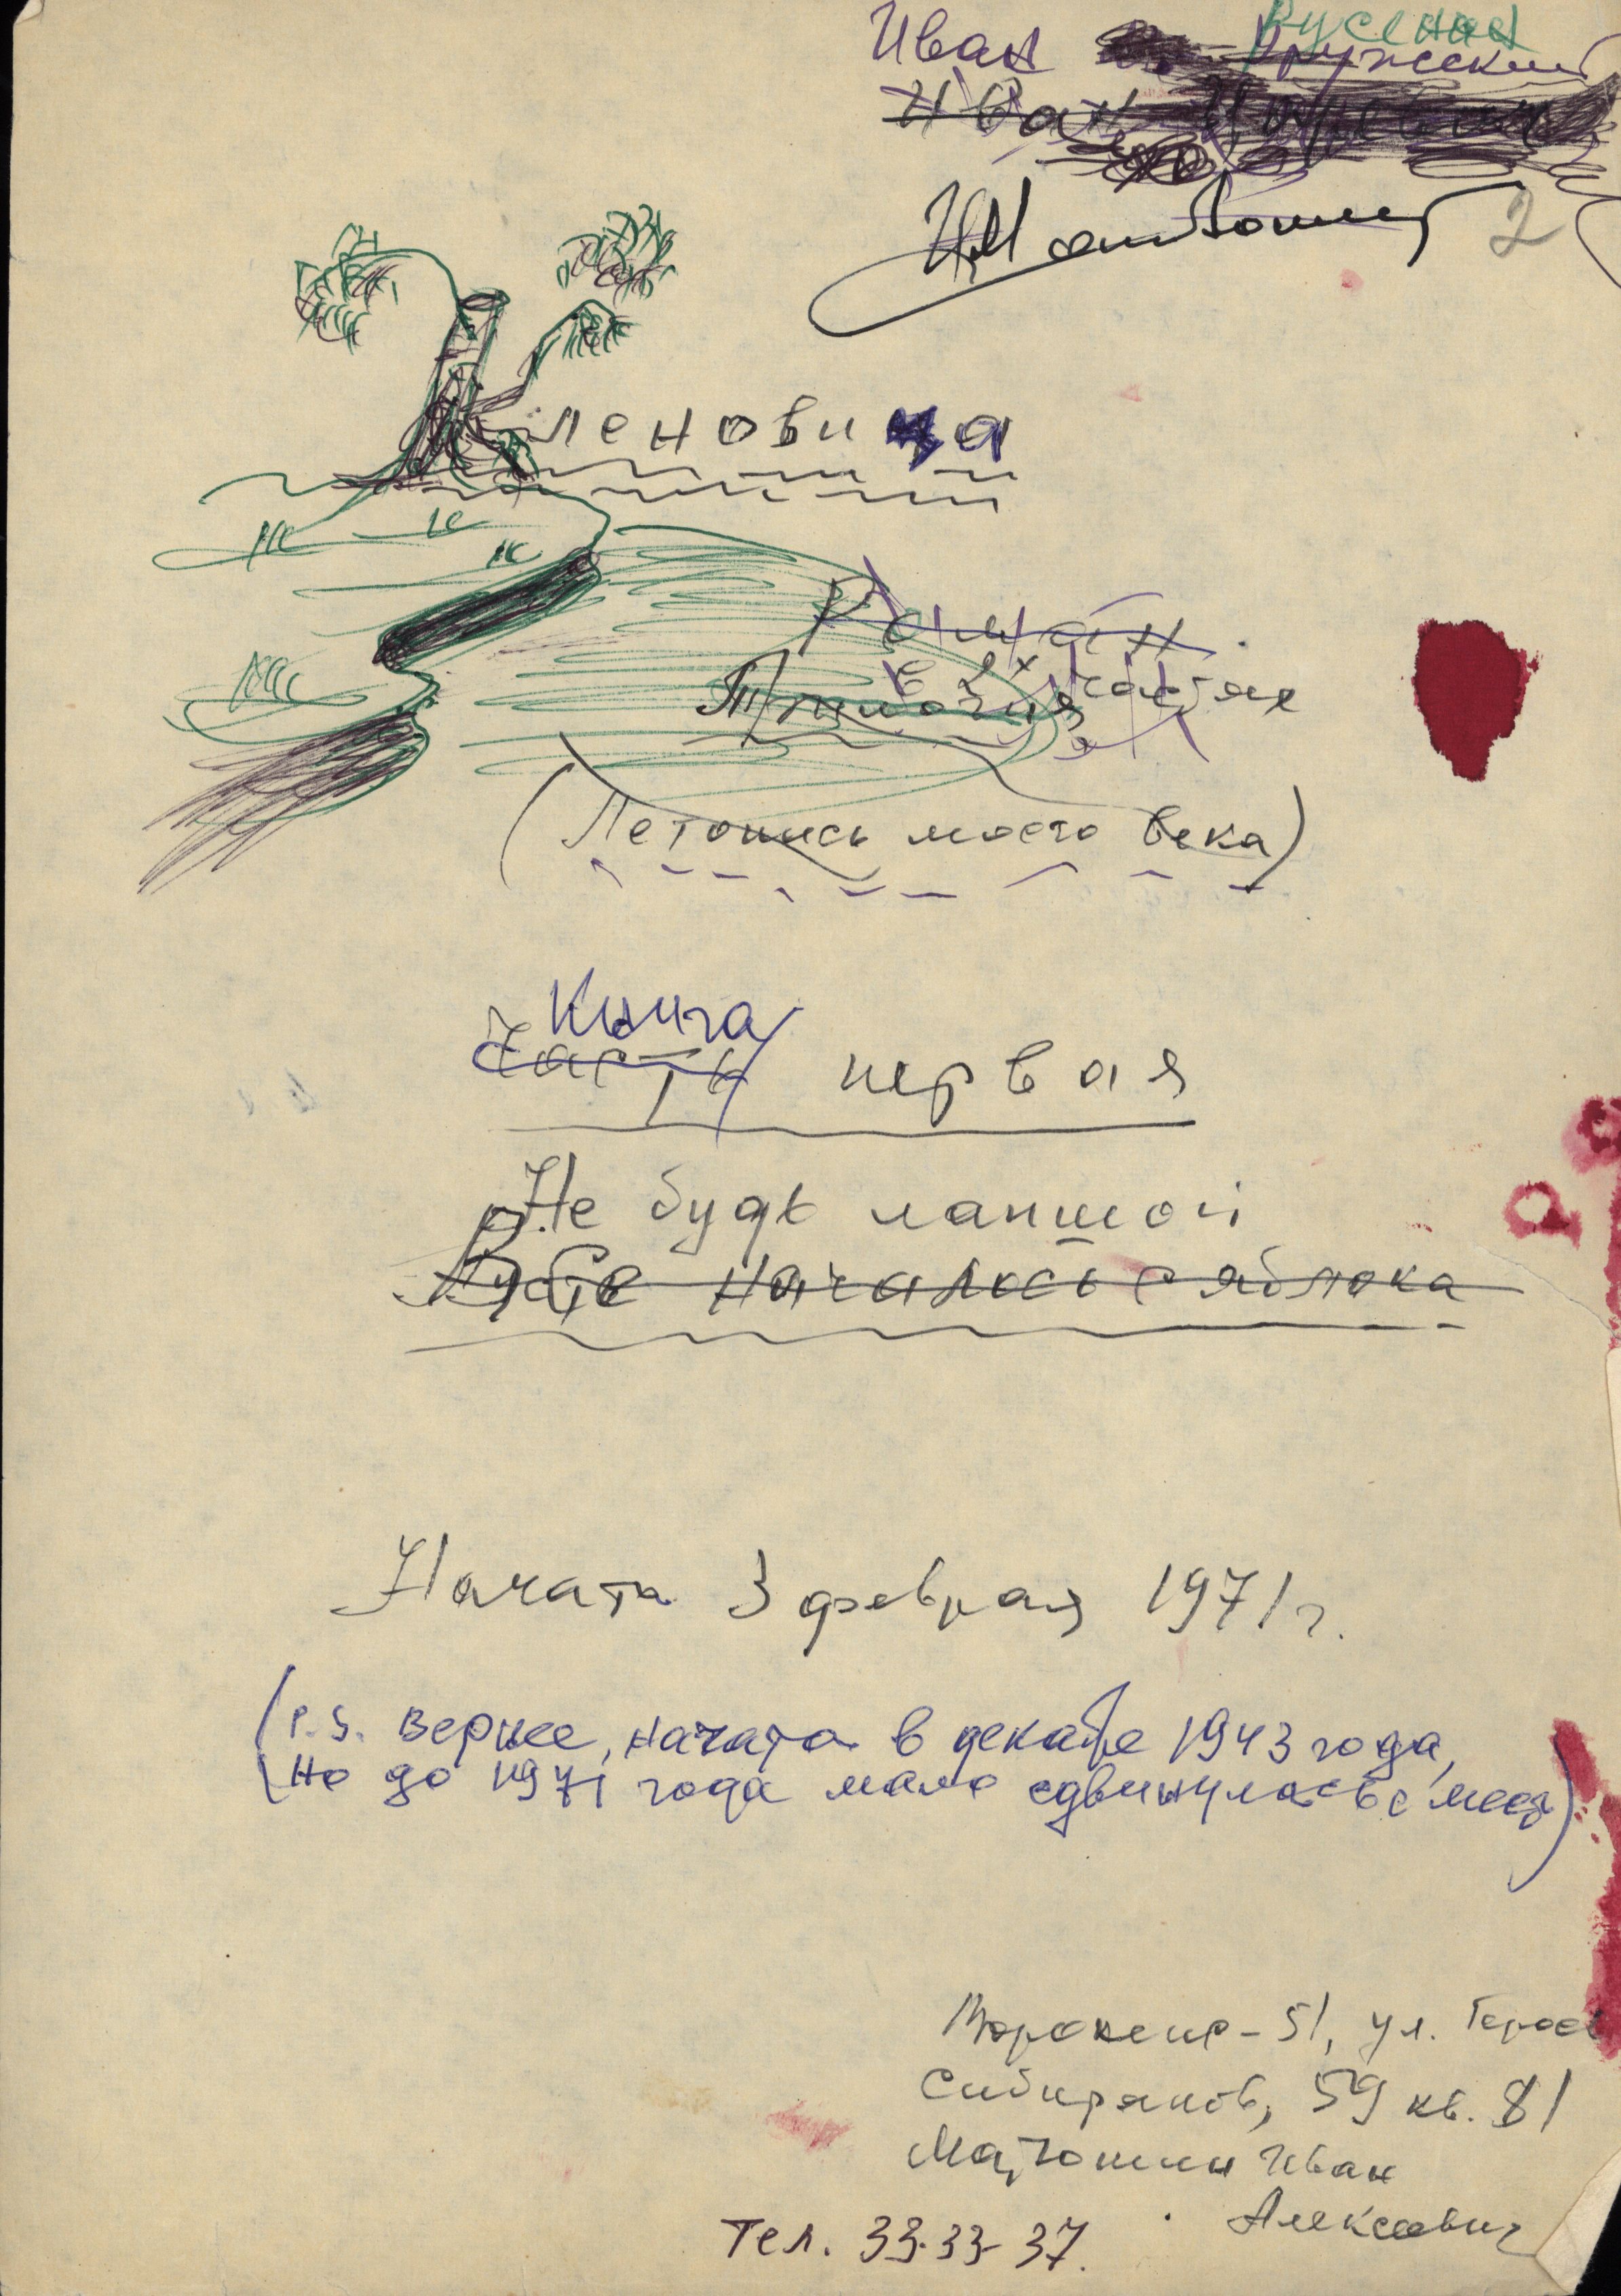 Русенин
Иван Дружеский
Иван
2
Кленовица
Роман
в 2х частях
Трилогия
(Летопись моего века)
Книга
Часть первая
Не будь лапшой
Все началось с яблока
Начата 3 февраля 1971 г.
(P.S. Вернее, начата в декабре 1943 года,
Но до 1971 года мало сдвинулась с места)
Воронеж-51, ул. Героев
Сибиряков, 59 кв. 81
Матюшин Иван
Алексеевич
Тел. 33-33-37.